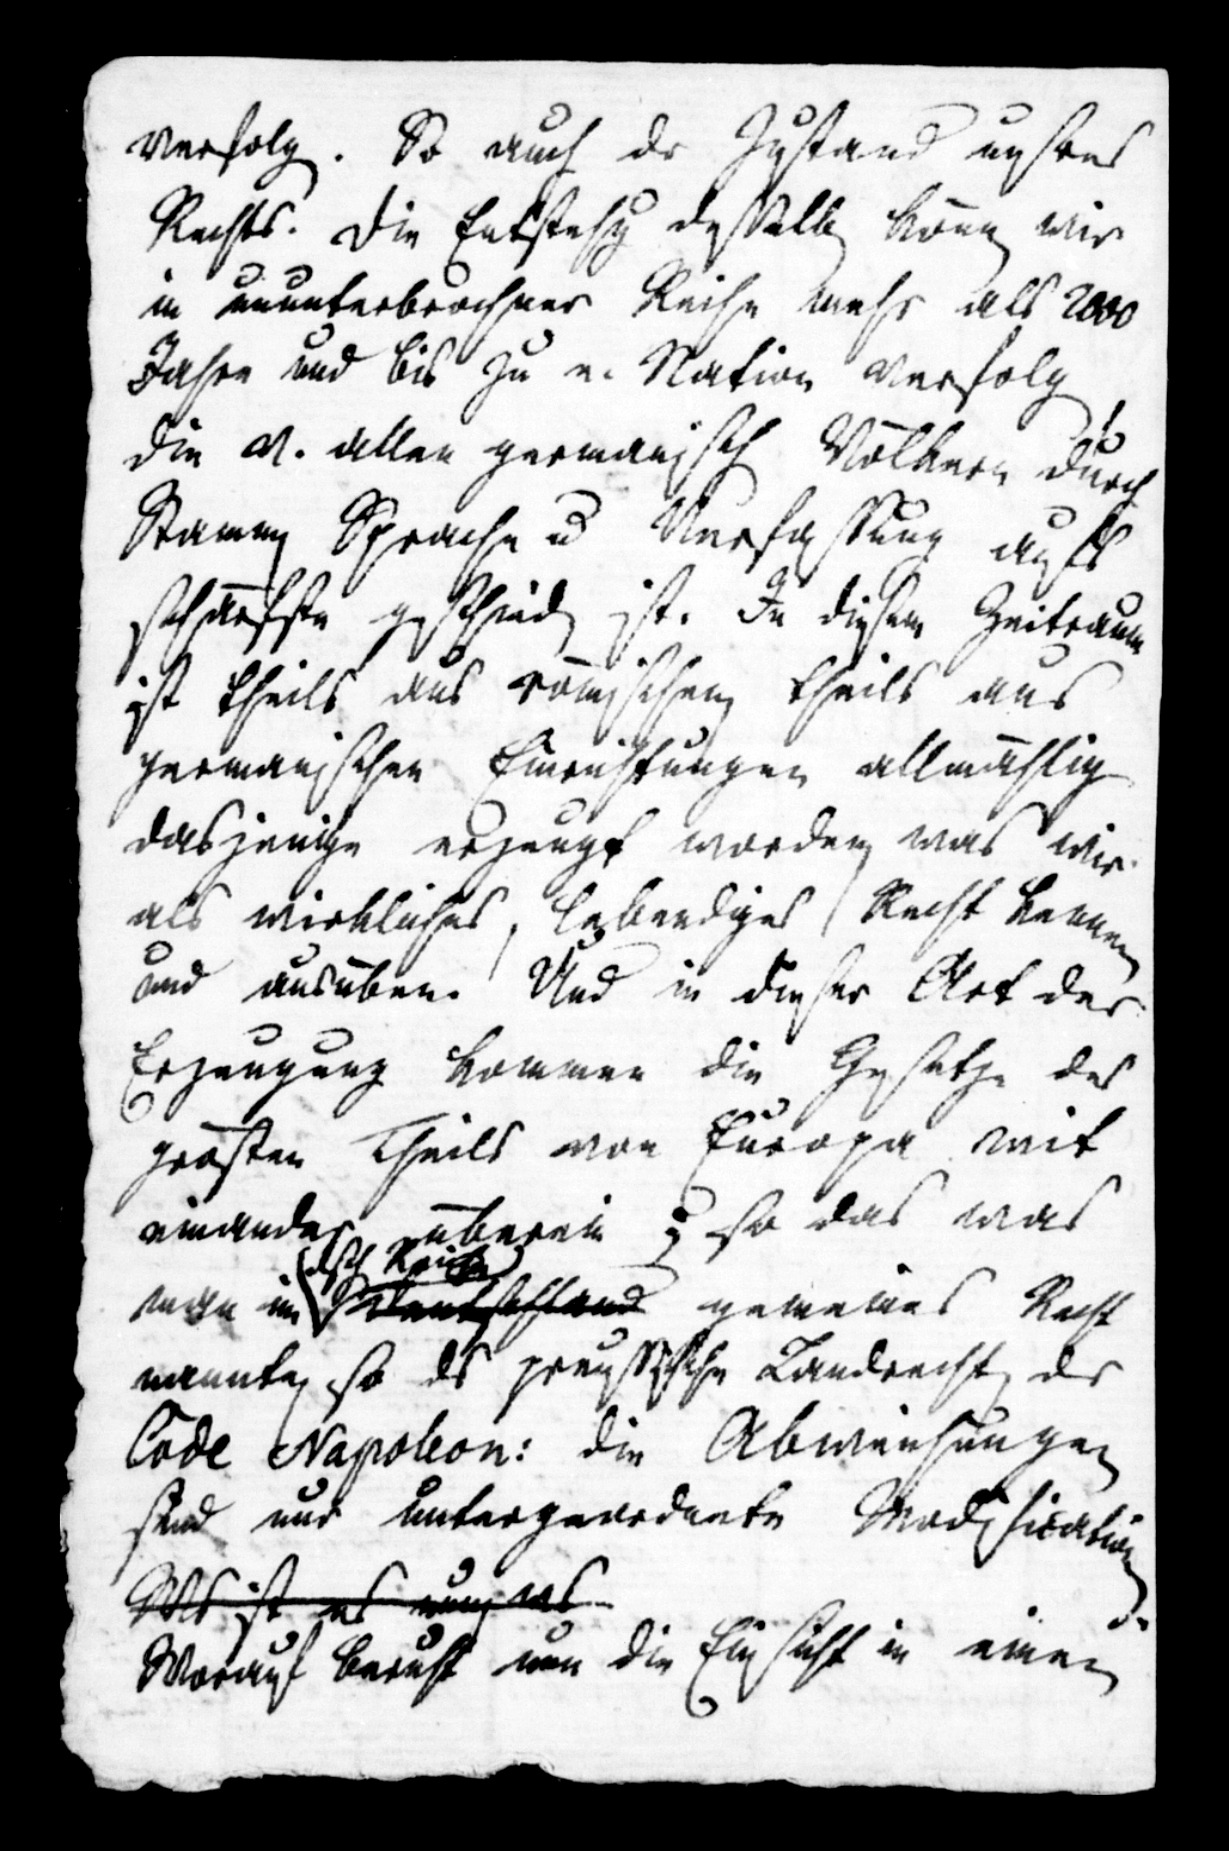 verfolg. So auch dr Zustand unsres
Rechts. Die Entstehg desselb könn wir
in ununterbrochner Reihe mehr als 2000
Jahre und bis zu e. Nation verfolg
die v. allen germanisch Völkern durch
Stamm Sprache u Verfassung aufs
schärfste geschied ist. In diesem Zeitraum
ist theils aus römischen theils aus
germanischen Einrichtungen allmählig
dasjenige erzeugt worden was wir
als wirkliches, lebendiges Recht kennen
und ausüben. Und in dieser Art der
Erzeugung kommen die Gesetze des
grösten Theils von Europa mit
einander überein; so das was
dsch Reiche
man im Deutschland gemeines Recht
nannte, so ds preussische Landrecht, dr
Code Napoleon: die Abweichungen
sind nur untergeordnete Modification
Was ist es nun was
Worauf beruht nun die Einsicht in einen